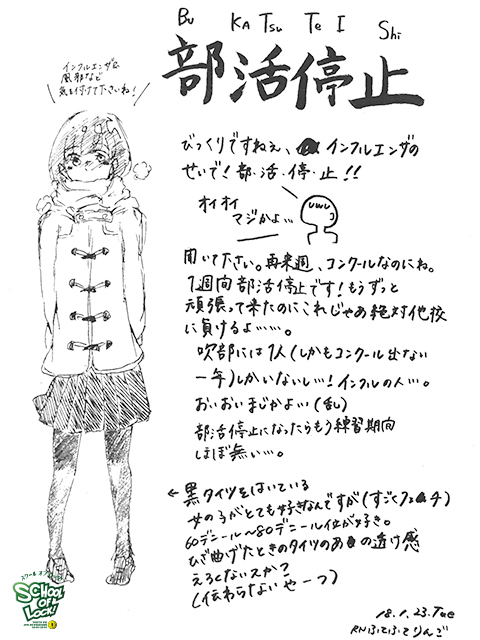 Bu KA Tsu Te I Shi
部活停止
インフルエンザや
風邪など
気を付けて下さいね!
びっくりですねぇ、インフルエンザの
せいで!部・活・停・止!!
オイオイ
マジかよ…
聞いて下さい。再来週、コンクールなのにね。
1週間部活停止です!もうずっと
頑張って来たのにこれじゃあ絶対他校
に負けるよ……。
吹部には1人(しかもコンクール出ない
一年)しかいないし…!インフルの人…。
おいおいまじかよい(乱)
部活停止になったらもう練習期間
ほぼ無い…。
←黒タイツをはいている
女の子がとても好きなんですが(すごくフェチ)
60デニール〜80デニール位が好き。
ひざ曲げたときのタイツのあの透け感
えろくないスか?
(伝わらないやーつ)
18.1.23.Tue
RNふてふてりんご
スクールオブロック
SCHOOL OF LOCK!